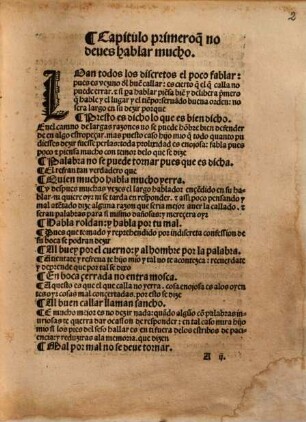 2
¶ Capítulo primeroq̃ no
deues hablar mucho.
LOan todos los discretos el poco fablar:
pues es vezino dl̃ buẽ callar: es cierto q̃ el q̃ calla no
puede errar. ⁊ si pa hablar piẽsa biẽ y delibera p̃mero
q̃ hable y el lugar y el tiẽpo seruãdo buena orden: no
errara en su dezir porque
¶ Presto es dicho lo que es bien dicho.
En el camino de largas razones no se puede hõbre biẽ defender
de en algo estropeçar. mas puesto caso hijo mio q̃ todo quanto pu
diesses dezir fuesse perlas: toda prolixidad es enojosa: fabla pues
poco y piensa mucho con temor delo que se dize
¶ Palabra no se puede tomar pues que es dicha.
El refran tan verdadero que
¶ Quien mucho habla mucho yerra.
Y despues muchas vezes el largo hablador encẽdido en su hab
lar. ni quiere oyr: ni se tarda en respõder. ⁊ assi poco pensando y
mal auisado dize alguna razon que sera mejor auer la callado. ⁊
seran palabras para si mismo dañosas: y merecera oyr
¶ Habla roldan: y habla por tu mal.
Pues que tomado y reprehendido por indiscreta confession de
su boca se podran dezir
¶ Al buey por el cuerno: y al hombre por la palabra.
Abientate y refrena te hijo mio y tal no te acontezca: recuerdate
y deprende que por tal se dize
¶ En boca cerrada no entra mosca.
Aquesto es que el que calla no yerra. cosa enojosa es alos oyen
tes yr cosas mal concertadas. por esto se dize
¶ Al buen callar llaman sancho.
E mucho mejor es no dezir nada: quãdo algũo cõ palabras in
juriosas te quiera dar ocasion de responder: en tal caso mira hijo
mio si los pies del seso hallas en ti fuera delos estribos de pa
ciencia: y reduziras ala memoria. que dizen
¶ Mal por mal no se deue tornar.
A ij.